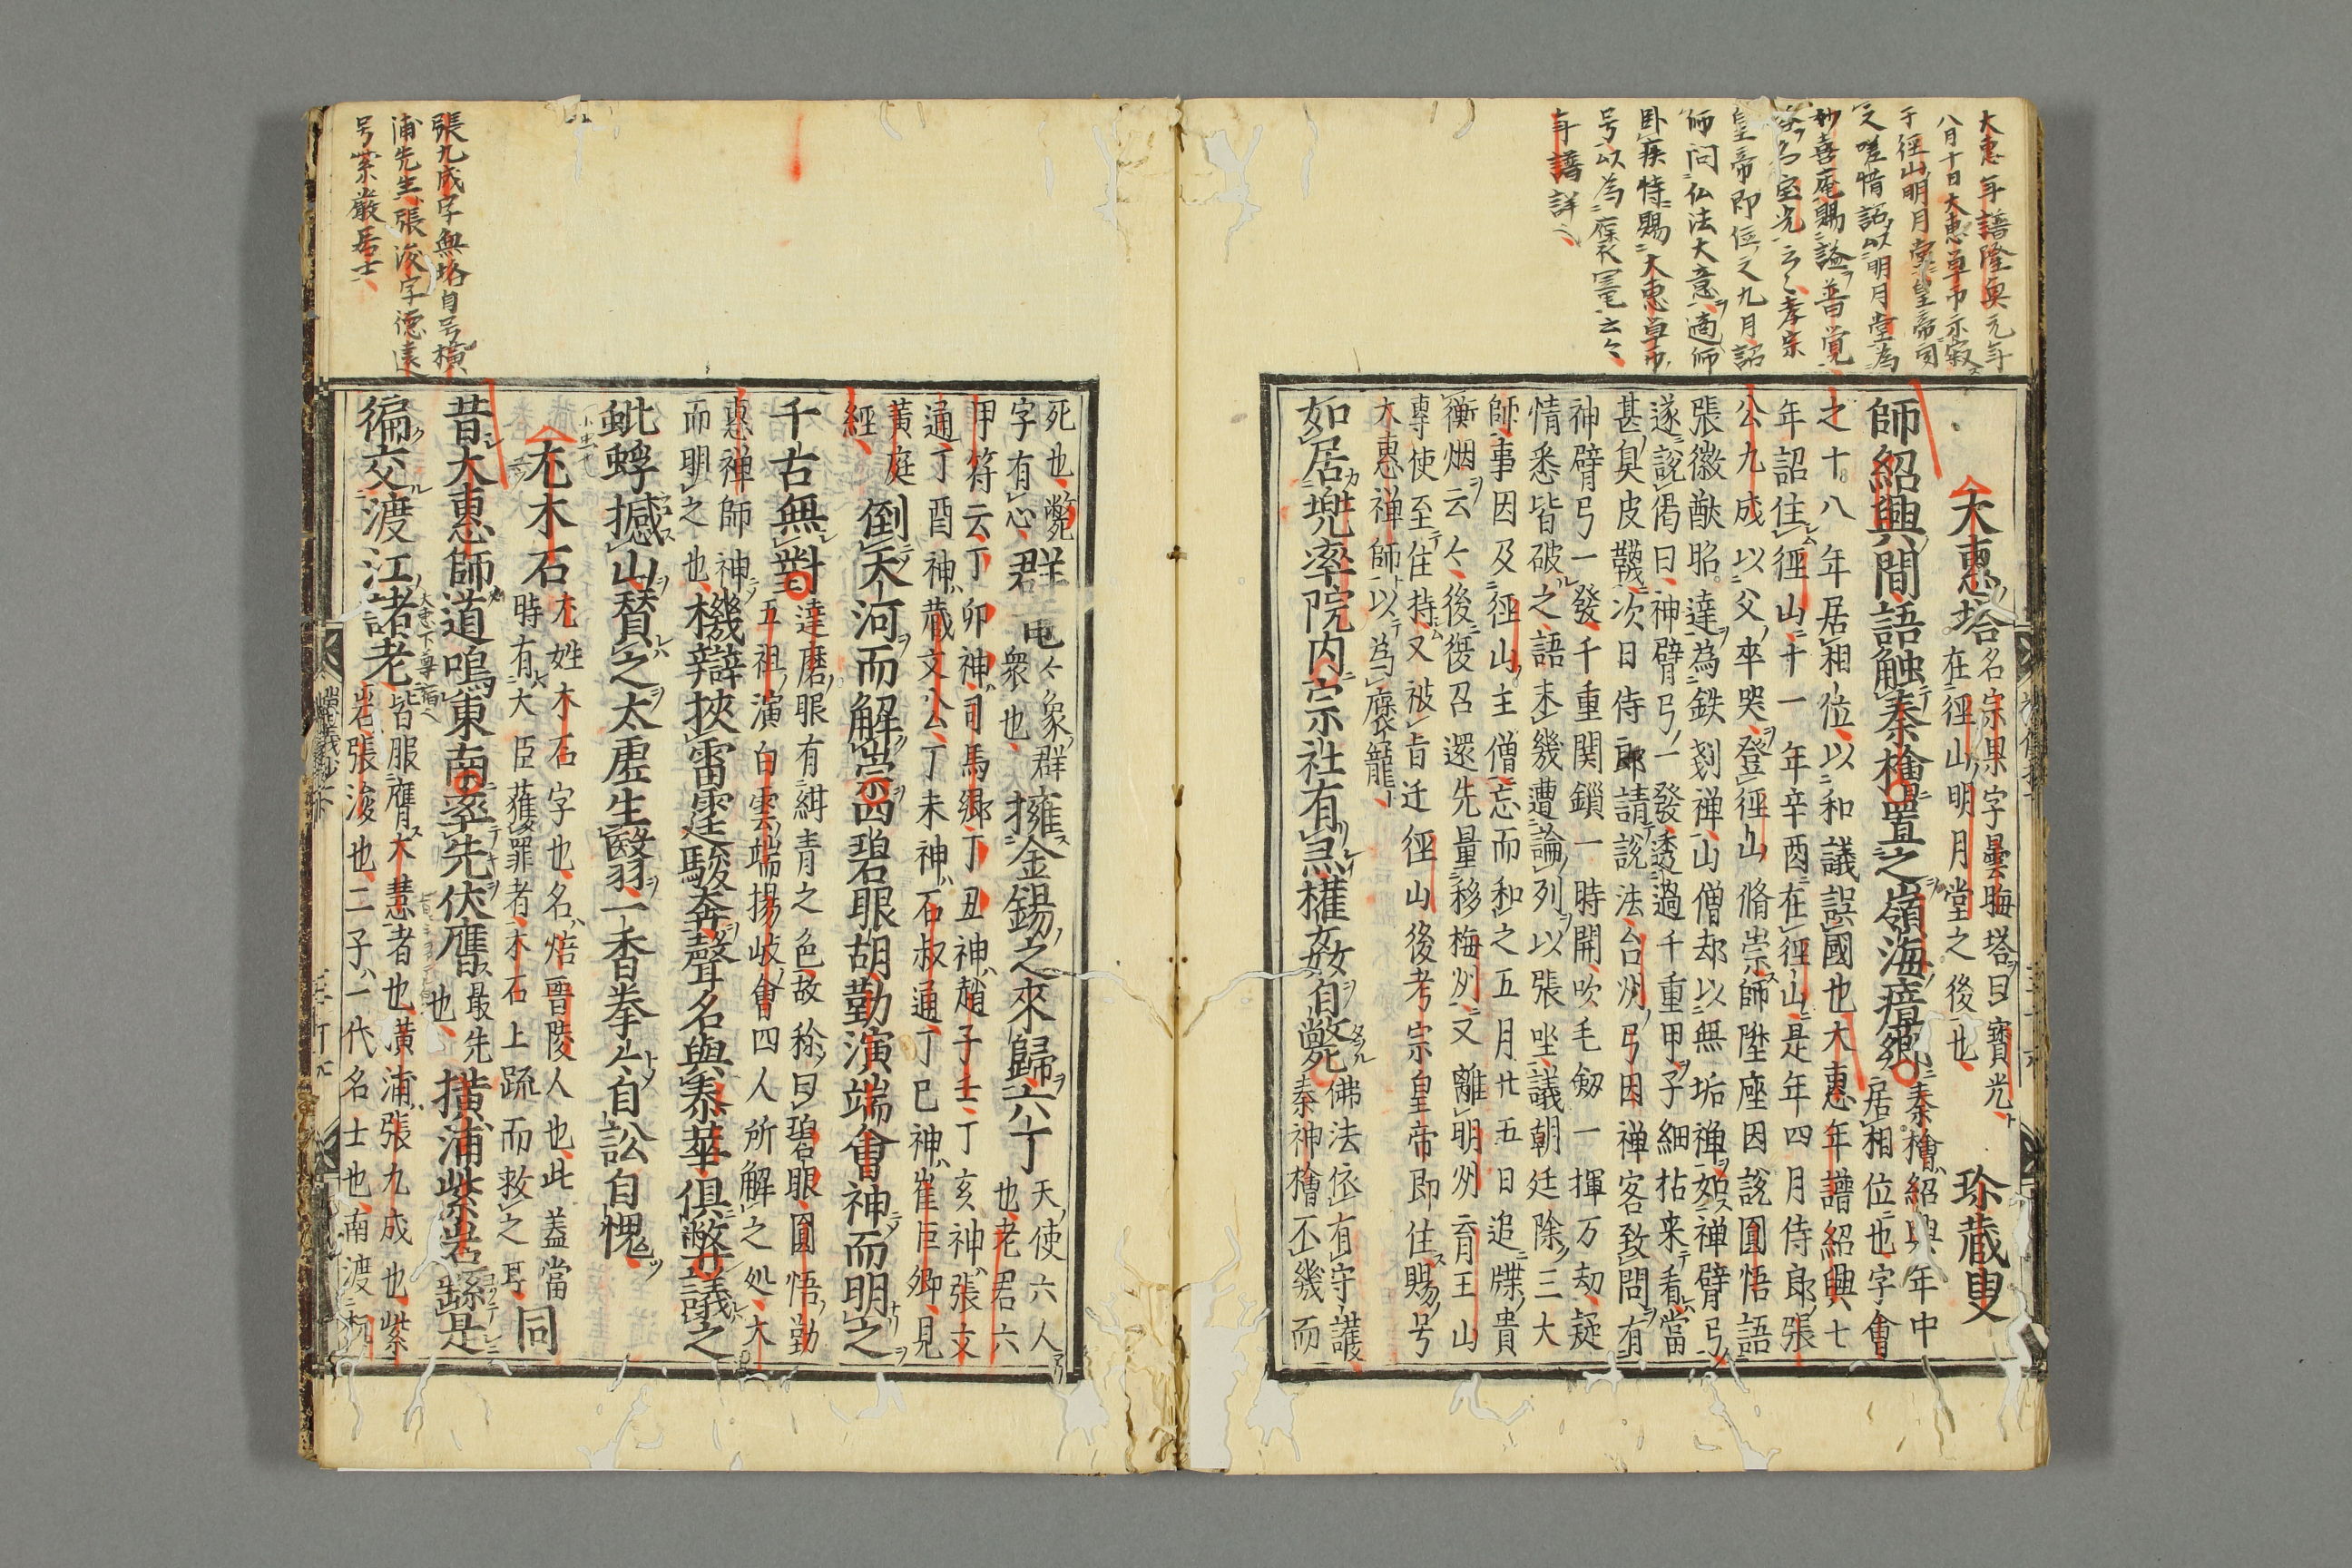 大惠年譜隆興元年
八月十日大惠单示寂
于径山明月堂皇帝聞
之嗟惜詔以明月堂為
妙喜庵賜諡普覚
塔名宝光云〻孝宗
皇帝即位之九月詔
師问仏法大意適師
卧疾特賜大惠
号以為
年譜詳
大惠塔
名宗杲字曇晦塔曰寶光
在徑山明月堂之後也
珎蔵叟
師紹興間語触秦檜置之嶺海瘴郷
秦檜紹興年中
居相位也字會
之十八年居相位以和議誤國也大惠年譜紹興七
年詔住徑山十一年辛酉在徑山是年四月侍郎張
公九成以父卒哭登徑山脩崇師陞座因說圓悟語
張徽猷昭達為鉄剗禅山僧却以無垢禅如禅臂弓
遂說偈曰神臂弓一發透過千重甲子細拈来看當
甚臭皮韈次日侍郎請說法台州弓因禅客致問有
神臂弓一發千重関鎖一時開吹毛劔一揮万刧疑
情悉皆破之語末幾遭論列以張坐議朝廷除三大
師事因及徑山主僧忘而和之五月廿五日追牒貴
衡烟云〻後復召還先量移梅州又離明州育王山
專使至住持又被旨迁徑山後考宗皇帝即住賜号
大惠禅師以為
如居兜率院内宗社有黑權姦自斃
佛法依有守護
秦神檜不幾而
死也斃
字有心
群
衆也
象群
擁金錫之來歸六丁
天使六人
也老君六
甲符云丁卯神司馬郷丁丑神趙子壬丁亥神張文
通丁酉神蔵文公丁未神石叔通丁巳神崔巨卿見
黃庭
經
倒天河而解崇四碧眼胡勤演端會神而明之
千古無對
達磨眼有紺青之色故稱曰碧眼圓悟勤
五祖演白雲端揚岐會四人所解之処大
惠禅師神
而明之也
機辯挾雷霆駿奔聲名與泰華俱弊議之
蚍蜉撼山賛之太虚生翳一香拳〻自訟自愧
尢木石
尢姓木石字也名焙晋陵人也此蓋當
時有大臣獲罪者木石上疏而救之耳
同
昔大惠師道鳴東南率先伏膺
最先
也
橫浦紫岩繇是
徧交渡江諸老
皆服膺大慧者也橫浦張九成也紫
岩張浚也二子一代名士也南渡
張九成字無垢自号橫
浦先生張浚字德遠
号紫巌居士